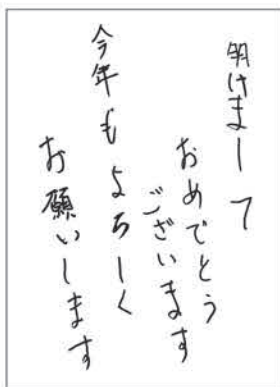 明けまして
おめでとう
ございます
今年も
よろしく
お願いします